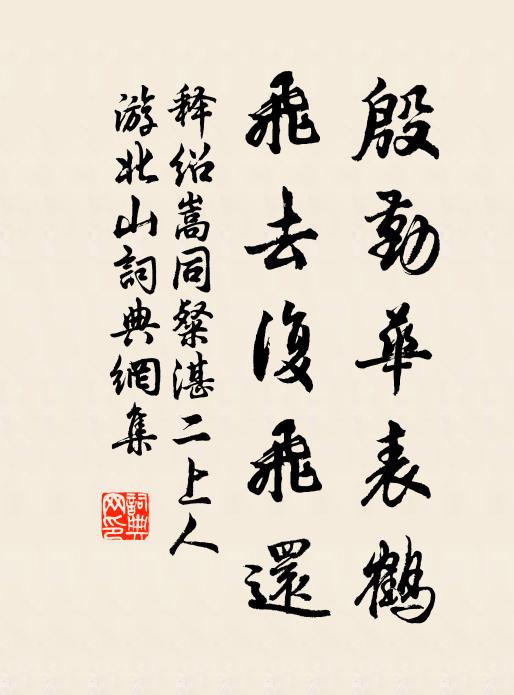 殷勤華表鶴
飛去復飛還
释紹嵩同粲湛二上人
游北山詞典網集
詞典網印